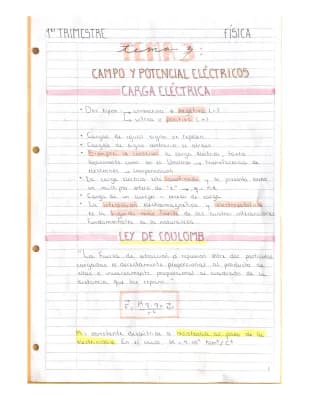 1er TRIMESTRE FÍSICA
tema 3:
CAMPO Y POTENCIAL ELÉCTRICOS
CARGA ELÉCTRICA
· Dos tipos: → negativa (-)
→ positiva (+)
· Cargas de igual signo se repelen
· Cargas de signo contrario se atraen
· Siempre se conserva la carga eléctrica, tanto
en el Universo → transferencia de
electrones →
· La carga eléctrica está cuantizada y se presenta como
un múltiplo entero de "e" → q = n·e
· Carga de un cuerpo = exceso de carga
· La interacción electromagnética
es la segunda más fuerte de las cuatro interacciones
fundamentales de la naturaleza
LEY DE COULOMB
"La fuerza de atracción o repulsión entre dos partículas
cargadas es directamente proporcional al producto de
ellas e inversamente proporcional al cuadrado de la
distancia que las separa."
K = constante resistencia al paso de la
electricidad. En el vacío, K = 9·10⁹ Nm²/C²